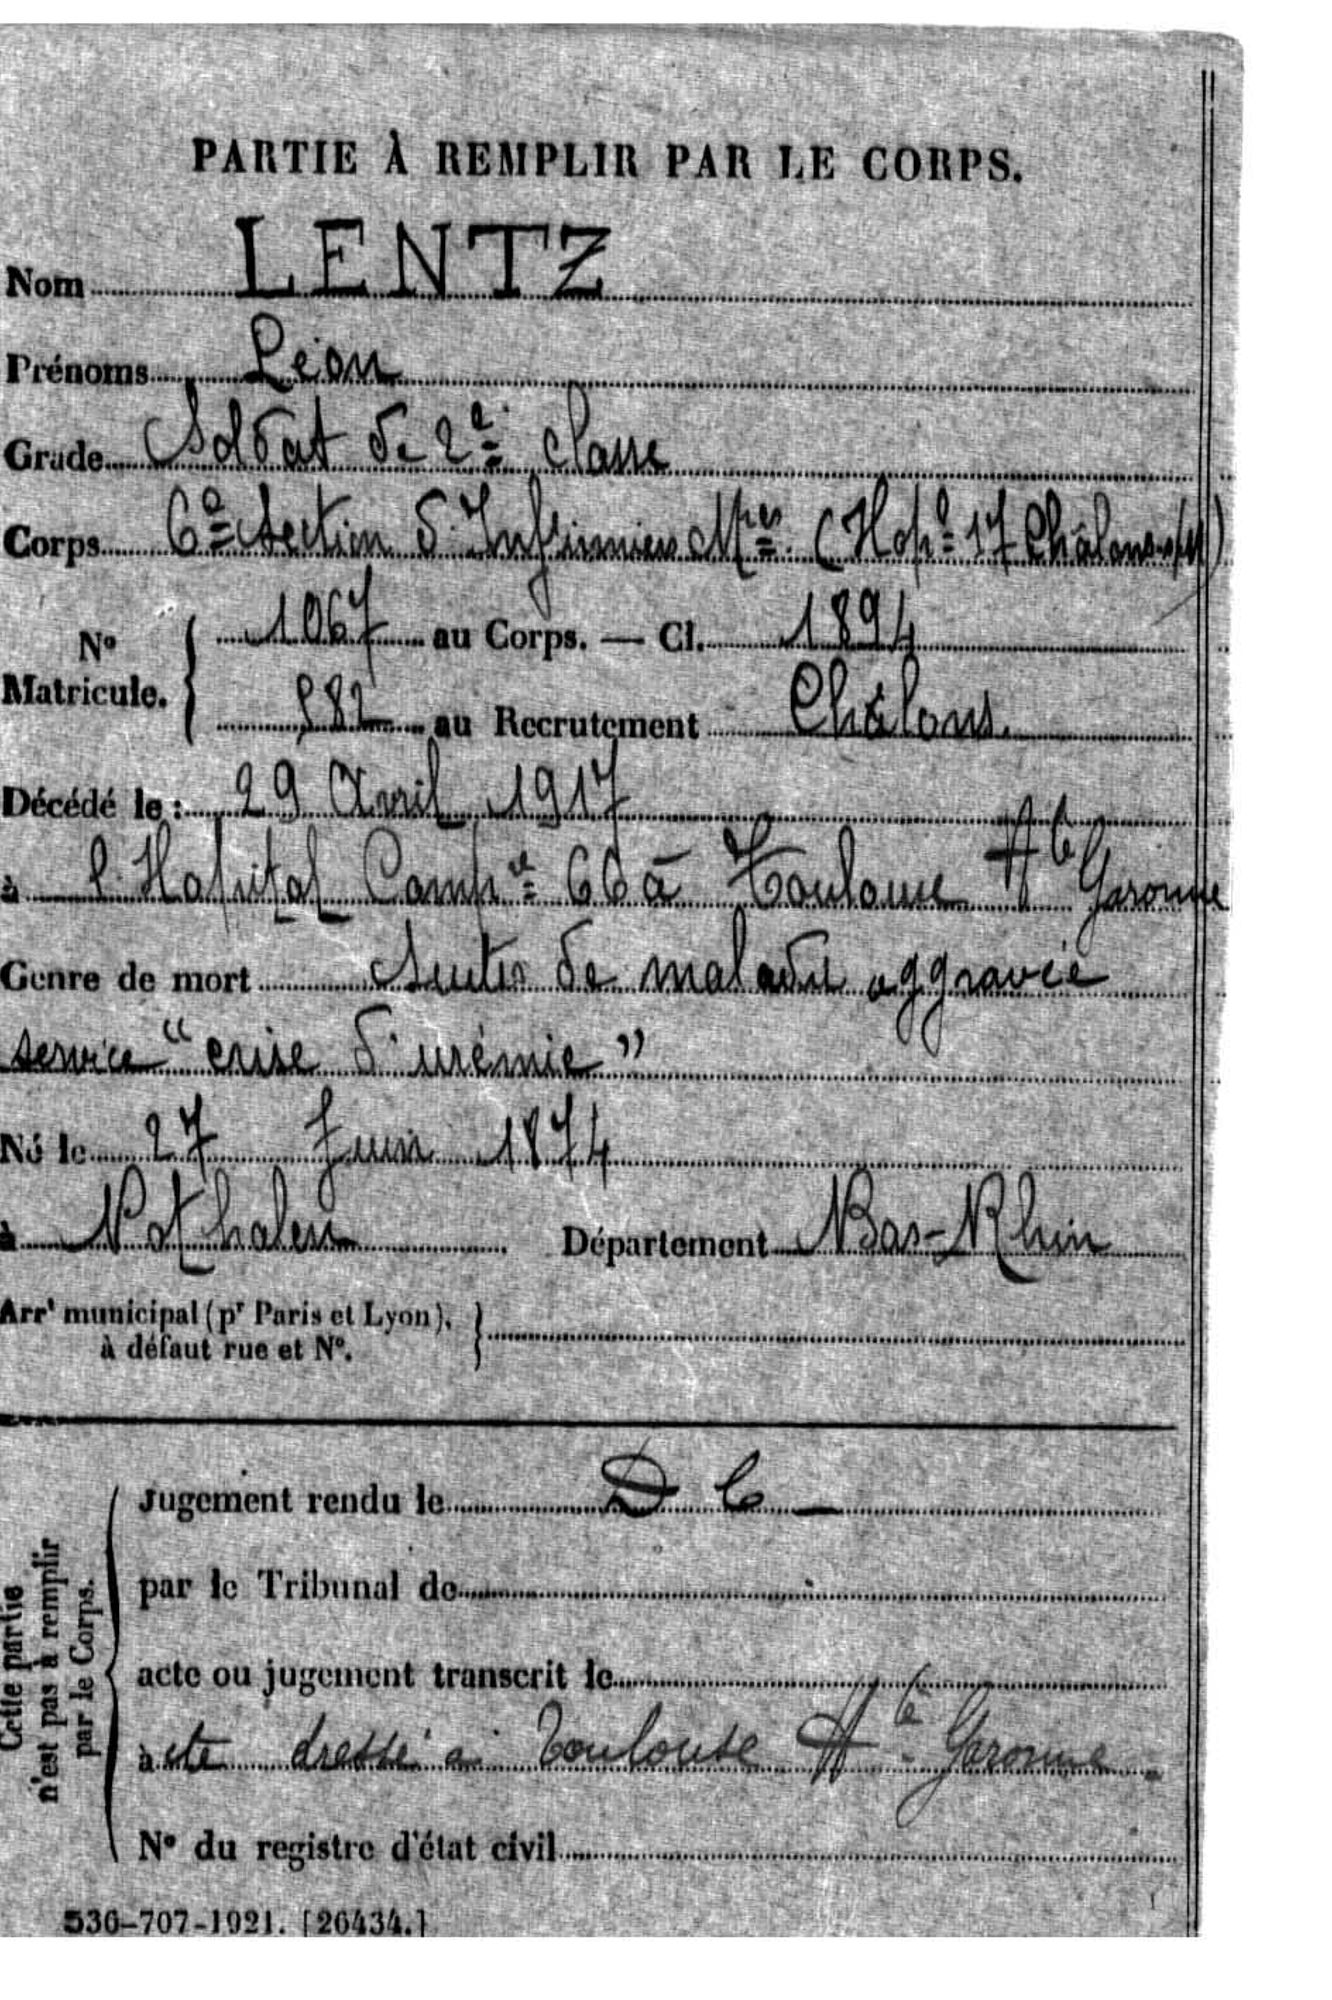 PARTIE À REMPLIR PAR LE CORPS.
Nom LENTZ
Prénoms Léon
Grade Soldat de 2e classe
Corps 6e Section d'Infirmiers Mres (Hopl 17 Châlons s/M)
No Matricule. { 1067 au Corps. — Cl. 1894
982 au Recrutement Châlons.
Décédé le : 29 Avril 1917
à l'Hopital Compre 66 à Toulouse Hte Garonne
Genre de mort Suites de maladie aggravée
service "crise d'urémie"
Né le 27 Juin 1874
à Nothalen Département Bas-Rhin
Arrt municipal (pr Paris et Lyon), à défaut rue et No. }
Cette partie n'est pas à remplir par le Corps.
Jugement rendu le D C —
par le Tribunal de
acte ou jugement transcrit le
acte dressé à Toulouse Hte Garonne
No du registre d'état civil
536-707-1921. [26434.]